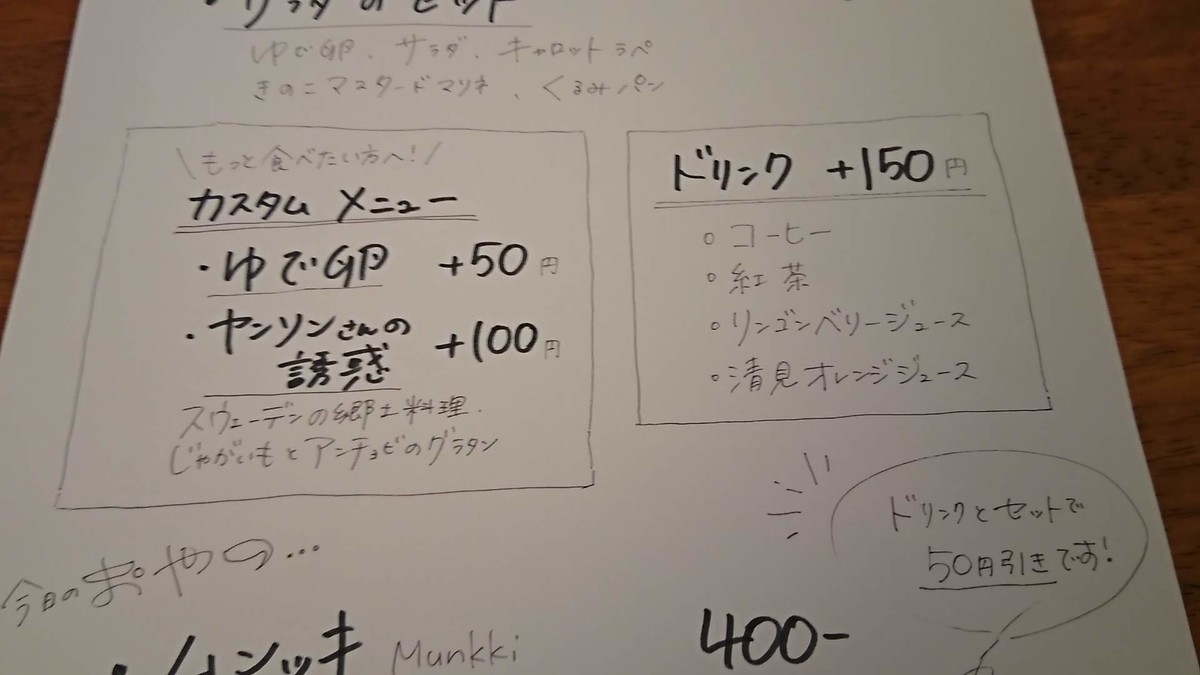 ゆで卵、サラダ、キャロットラペ
きのこマスタードマリネ、くるみパン
\もっと食べたい方へ!/
カスタムメニュー
・ゆで卵 +50円
・ヤンソンさんの
誘惑 +100円
スウェーデンの郷土料理.
じゃがいもとアンチョビのグラタン
ドリンク +150円
○コーヒー
○紅茶
○リンゴンベリージュース
○清見オレンジジュース
ドリンクとセットで
50円引きです!
今日のおやつ...
・ムンッキ Munkki 400-